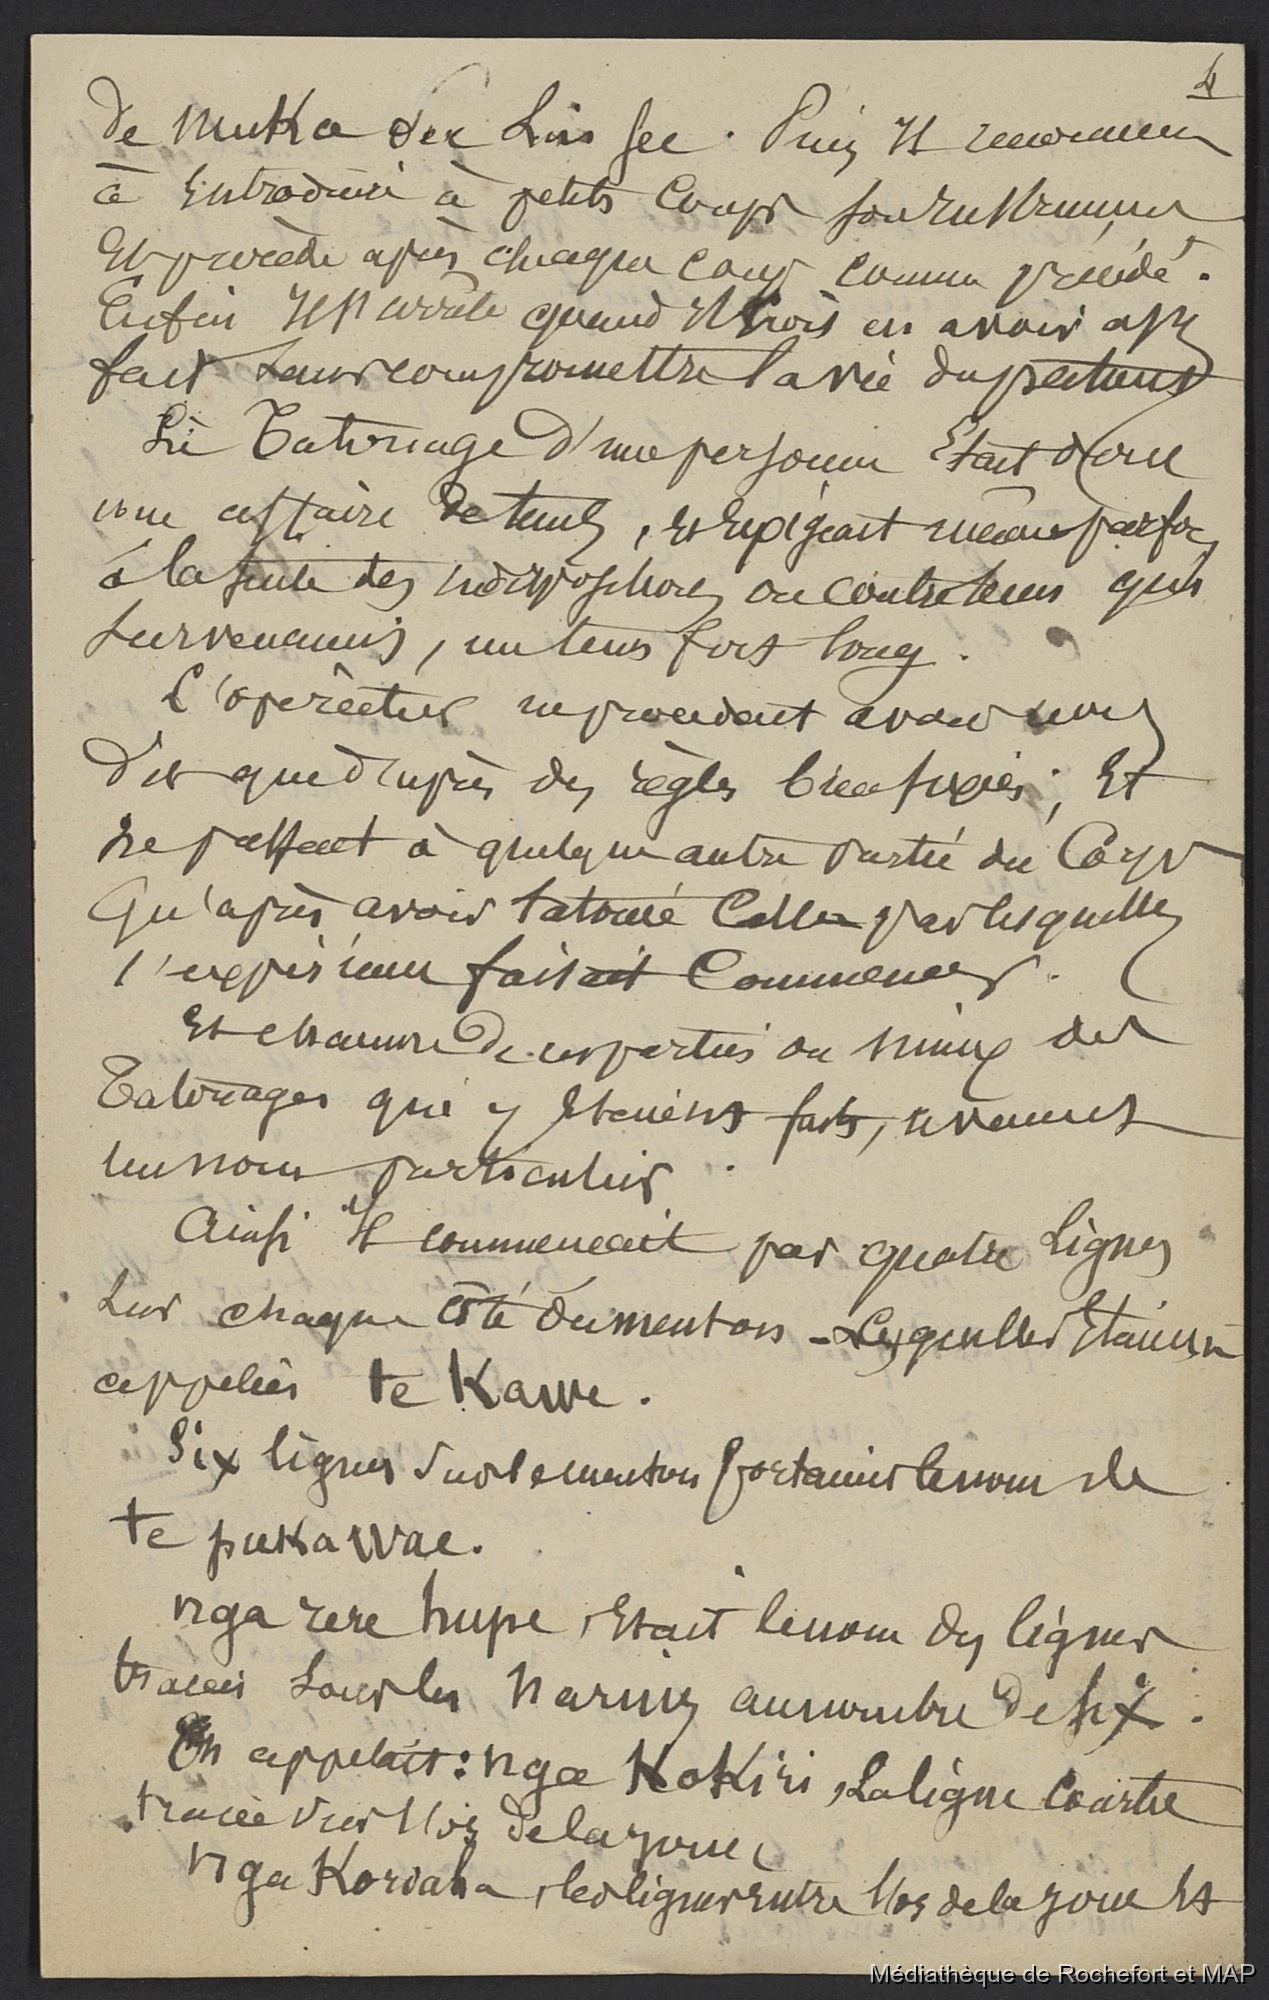 4
de muka ou lin sec. Puis il recommence
à introduire à petits coups son instrument
et procède après chaque coup comme précédé.
Enfin il s'arrête quand il croit en avoir assez
fait sans compromettre la vie du patient
Le Tatouage d'une personne était donc
une affaire de tems, et exigeait même parfois
à la suite des indispositions ou contretems qui
survenaient, un tems fort long.
L'opérateur ne procedait avons nous
dit que d'après des règles bien fixées; et
ne passait à quelque autre partie du Corps
qu'après avoir tatoué celles par lesquelles
l'expérience faisait commencer.
Et chacune de ces parties ou mieux des
Tatouages qui y étaient faits, avaient
un nom particulier.
Ainsi il commencait par quatre lignes
sur chaque côté du menton - lesquelles étaient
appelées te Kawe.
Six lignes sur le menton portaient le nom de
te pukawae.
nga rere hupe, était le nom des lignes
tracées sous les narines au nombre de six.
On appelait: nga KoKiri, la ligne courbe
tracée sur l'os de la joue,
nga Koroaha, les lignes entre l'os de la joue et
Médiathèque de Rochefort et MAP